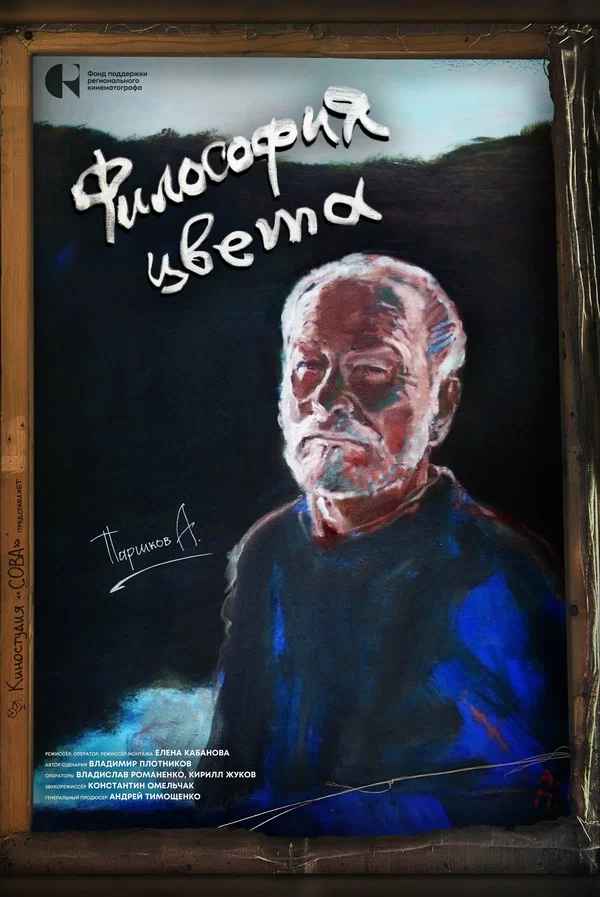 Фонд поддержки
регионального
кинематографа
Философия
цвета
Паршков А.
Киностудия «СОВА» представляет
РЕЖИССЁР, ОПЕРАТОР, РЕЖИССЁР МОНТАЖА ЕЛЕНА КАБАНОВА
АВТОР СЦЕНАРИЯ ВЛАДИМИР ПЛОТНИКОВ
ОПЕРАТОРЫ ВЛАДИСЛАВ РОМАНЕНКО, КИРИЛЛ ЖУКОВ
ЗВУКОРЕЖИССЁР КОНСТАНТИН ОМЕЛЬЧАК
ГЕНЕРАЛЬНЫЙ ПРОДЮСЕР АНДРЕЙ ТИМОЩЕНКО
А.
П.